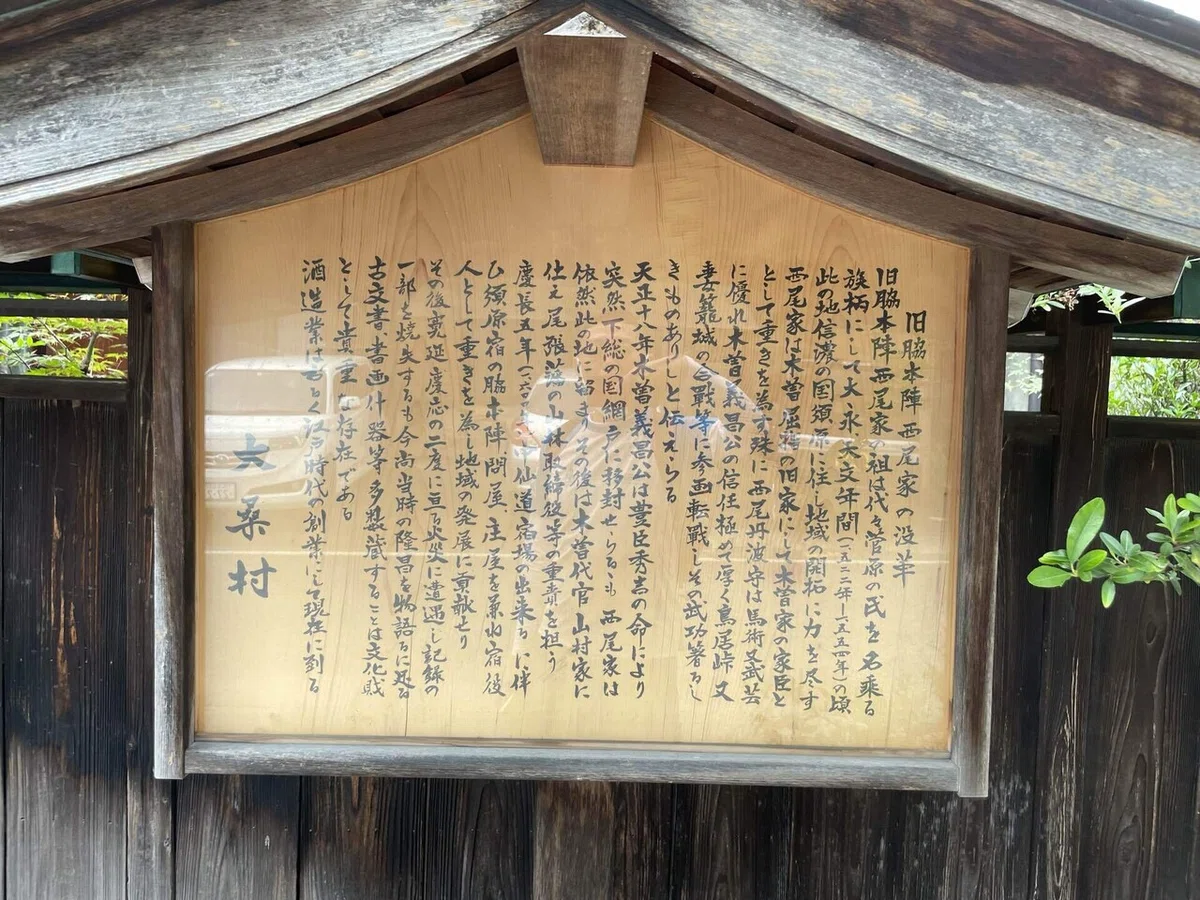 旧脇本陣西尾家の沿革
旧脇本陣西尾家の祖は代々菅原の氏を名乗る
族柄にして大永天文年間(一五二二年―一五五四年)の頃
此の地信濃の国須原に住し地域の開拓に力を尽す
西尾家は木曽屈指の旧家にして木曽家の家臣と
として重きを為す殊に西尾丹波守は馬術又武芸
に優れ木曽義昌公の信任極めて厚く鳥居峠又
妻籠城の合戦等に参画転戦しその武功著るし
きものありしと伝えらる
天正十八年木曽義昌公は豊臣秀吉の命により
突然下総の国網戸に移封せらるも西尾家は
依然此の地に留まりその後は木曽代官山村家に
仕え尾張藩の山林取締役等の重責を担う
慶長五年(一六〇〇年)中仙道宿場の出来るに伴
ひ須原宿の脇本陣問屋庄屋を兼ね宿役
人として重きを為し地域の発展に貢献せり
その後寛延慶応の二度に亘る火災に遭遇し記録の
一部を焼失するも今尚当時の隆昌を物語るに足る
古文書・書画什器等多数蔵することは文化財
として貴重な存在である
酒造業は古く江戸時代の創業にして現在に到る
大桑村